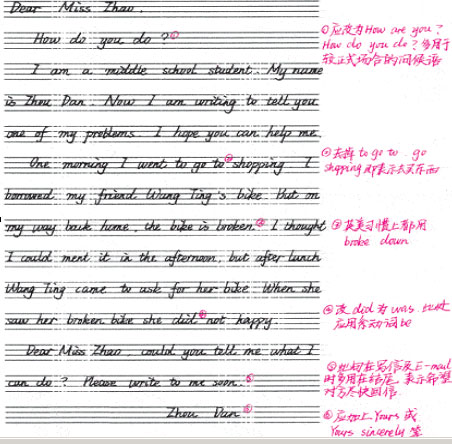 Dear Miss Zhao,
How do you do?①
I am a middle school student. My name
is Zhou Dan. Now I am writing to tell you
one of my problems. I hope you can help me.
One morning I went to go to②shopping. I
borrowed my friend Wang Ting's bike. But on
my way back home, the bike is broken.③ I thought
I could ment it in the afternoon, but after lunch
Wang Ting came to ask for her bike. When she
saw her broken bike she did④ not happy.
Dear Miss Zhao, could you tell me what I
can do? Please write to me soon.⑤
Zhou Dan⑥
①应改为How are you?
How do you do?多用于
较正式场合的问候语
②去掉 to go to. go
shopping 即表示去买东西
③英美习惯上都用
broke down
④改 did 为 was. 此处
应用系动词be
⑤此句在写信及E-mail
时多用在结尾, 表示希望
对方尽快回信
⑥应加上Yours 或
Yours sincerely 等